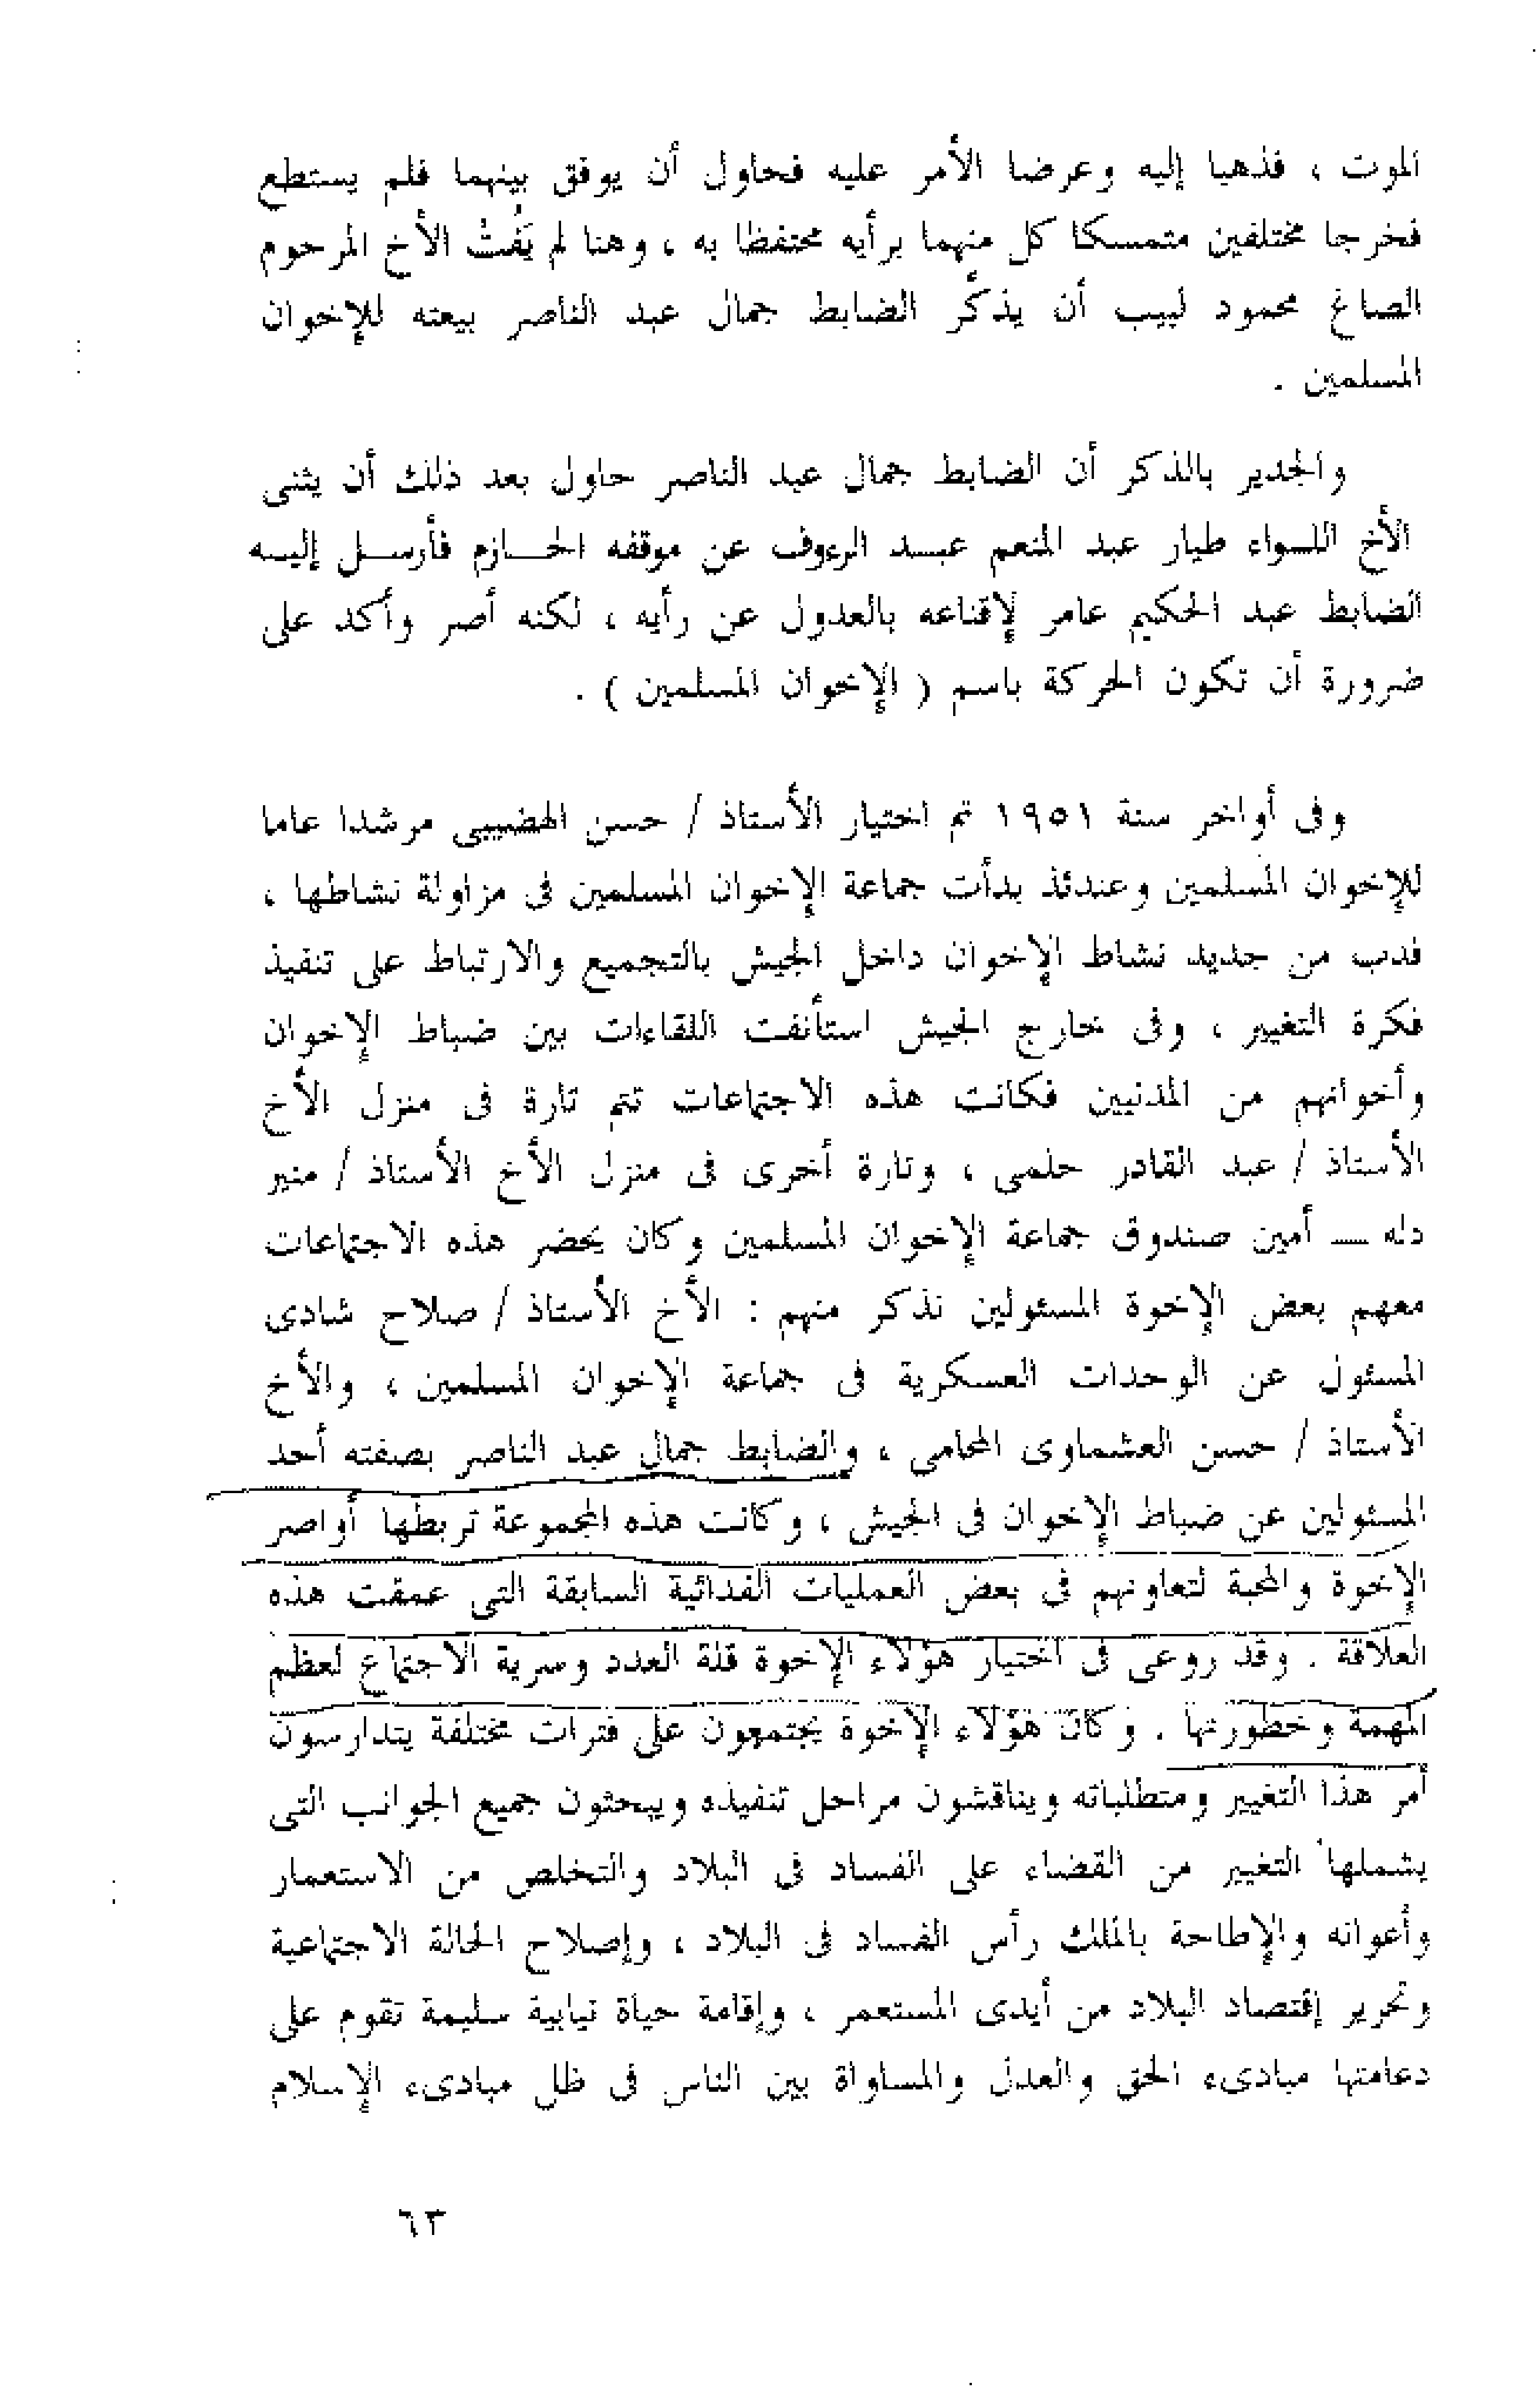 الموت ، فذهبا إليه وعرضا الأمر عليه فحاول أن يوفق بينهما فلم يستطع
فخرجا مختلفين متمسكا كل منهما برأيه محتفظا به ، وهنا لم يَفُتْ الأخ المرحوم
الصاغ محمود لبيب أن يذكّر الضابط جمال عبد الناصر ببيعته للإخوان
المسلمين .
والجدير بالذكر أن الضابط جمال عبد الناصر حاول بعد ذلك أن يثنى
الأخ اللـواء طيار عبد المنعم عبـد الرءوف عن موقفه الحـازم فأرسـل إليـه
الضابط عبد الحكيم عامر لإقناعه بالعدول عن رأيه ، لكنه أصر وأكد على
ضرورة أن تكون الحركة باسم ( الإخوان المسلمين ) .
وفى أواخر سنة ١٩٥١ تم اختيار الأستاذ / حسن الهضيبى مرشدا عاما
للإخوان المسلمين وعندئذ بدأت جماعة الإخوان المسلمين فى مزاولة نشاطها ،
فدب من جديد نشاط الإخوان داخل الجيش بالتجميع والارتباط على تنفيذ
فكرة التغيير ، وفى خارج الجيش استأنفت اللقاءات بين ضباط الإخوان
وأخوانهم من المدنيين فكانت هذه الاجتماعات تتم تارة فى منزل الأخ
الأستاذ / عبد القادر حلمى ، وتارة أخرى فى منزل الأخ الأستاذ / منير
دله ـــ أمين صندوق جماعة الإخوان المسلمين وكان يحضر هذه الاجتماعات
معهم بعض الإخوة المسئولين نذكر منهم : الأخ الأستاذ / صلاح شادى
المسئول عن الوحدات العسكرية فى جماعة الإخوان المسلمين ، والأخ
الأستاذ / حسن العشماوى المحامى ، والضابط جمال عبد الناصر بصفته أحد
المسئولين عن ضباط الإخوان فى الجيش ، وكانت هذه المجموعة تربطها أواصر
الإخوة والمحبة لتعاونهم فى بعض العمليات الفدائية السابقة التى عمقت هذه
العلاقة . وقد روعى فى اختيار هؤلاء الإخوة قلة العدد وسرية الاجتماع لعظم
المهمة وخطورتها . وكان هؤلاء الإخوة يجتمعون على فترات مختلفة يتدارسون
أمر هذا التغيير ومتطلباته ويناقشون مراحل تنفيذه ويبحثون جميع الجوانب التى
يشملها التغيير من القضاء على الفساد فى البلاد والتخلص من الاستعمار
وأعوانه والإطاحة بالملك رأس الفساد فى البلاد ، وإصلاح الحالة الاجتماعية
وتحرير إقتصاد البلاد من أيدى المستعمر ، وإقامة حياة نيابية سليمة تقوم على
دعامتها مبادىء الحق والعدل والمساواة بين الناس فى ظل مبادىء الإسلام
٦٣